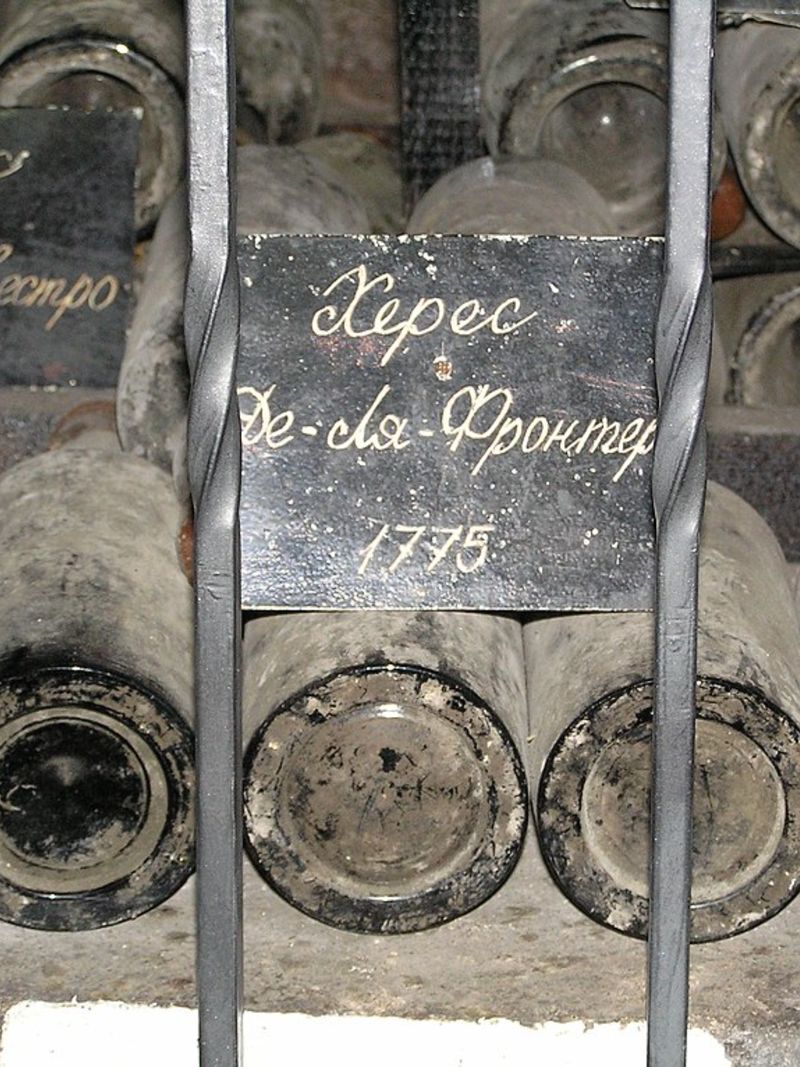 естро
Херес
Де-Ля-Фронтер
1775